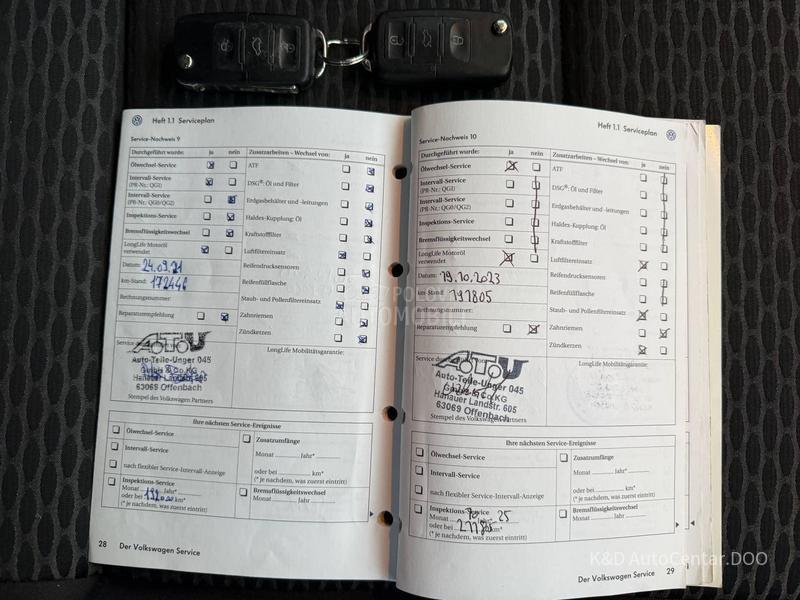 Heft 1.1 Serviceplan
Service-Nachweis 9
Durchgeführt wurde: ja nein
Zusatzarbeiten – Wechsel von: ja nein
Ölwechsel-Service
ATF
Intervall-Service
(PR-Nr.: QGI)
DSG®: Öl und Filter
Intervall-Service
(PR-Nr.: QG0/QG2)
Erdgasbehälter und -leitungen
Inspektions-Service
Haldex-Kupplung: Öl
Bremsflüssigkeitswechsel
Kraftstofffilter
LongLife Motoröl
verwendet
Luftfiltereinsatz
Datum: 24.09.21
Reifendrucksensoren
km-Stand: 172446
Reifenfüllflasche
Rechnungsnummer:
Staub- und Pollenfiltereinsatz
Reparaturempfehlung
Zahnriemen
Zündkerzen
AUTOU
Auto-Teile-Unger 045
GmbH & Co.KG
Hanauer Landstr. 605
63069 Offenbach
Stempel des Volkswagen Partners
LongLife Mobilitätsgarantie:
Ihre nächsten Service-Ereignisse
Ölwechsel-Service
Zusatzumfänge
Intervall-Service
Monat Jahr*
nach flexibler Service-Intervall-Anzeige
oder bei km*
(* je nachdem, was zuerst eintritt)
Inspektions-Service
Monat Jahr*
oder bei km*
(* je nachdem, was zuerst eintritt)
Bremsflüssigkeitswechsel
Monat Jahr
28 Der Volkswagen Service
Heft 1.1 Serviceplan
Service-Nachweis 10
Durchgeführt wurde: ja nein
Zusatzarbeiten – Wechsel von: ja nein
Ölwechsel-Service
ATF
Intervall-Service
(PR-Nr.: QGI)
DSG®: Öl und Filter
Intervall-Service
(PR-Nr.: QG0/QG2)
Erdgasbehälter und -leitungen
Inspektions-Service
Haldex-Kupplung: Öl
Bremsflüssigkeitswechsel
Kraftstofffilter
LongLife Motoröl
verwendet
Luftfiltereinsatz
Datum: 19.10.2023
Reifendrucksensoren
km-Stand: 191805
Reifenfüllflasche
Rechnungsnummer:
Staub- und Pollenfiltereinsatz
Reparaturempfehlung
Zahnriemen
Zündkerzen
AUTOU
Auto-Teile-Unger 045
GmbH & Co.KG
Hanauer Landstr. 605
63069 Offenbach
Stempel des Volkswagen Partners
LongLife Mobilitätsgarantie:
Ihre nächsten Service-Ereignisse
Ölwechsel-Service
Zusatzumfänge
Intervall-Service
Monat Jahr*
nach flexibler Service-Intervall-Anzeige
oder bei km*
(* je nachdem, was zuerst eintritt)
Inspektions-Service
Monat 10 Jahr* 25
oder bei km*
(* je nachdem, was zuerst eintritt)
Bremsflüssigkeitswechsel
Monat Jahr
Der Volkswagen Service 29
K&D AutoCentar.DOO